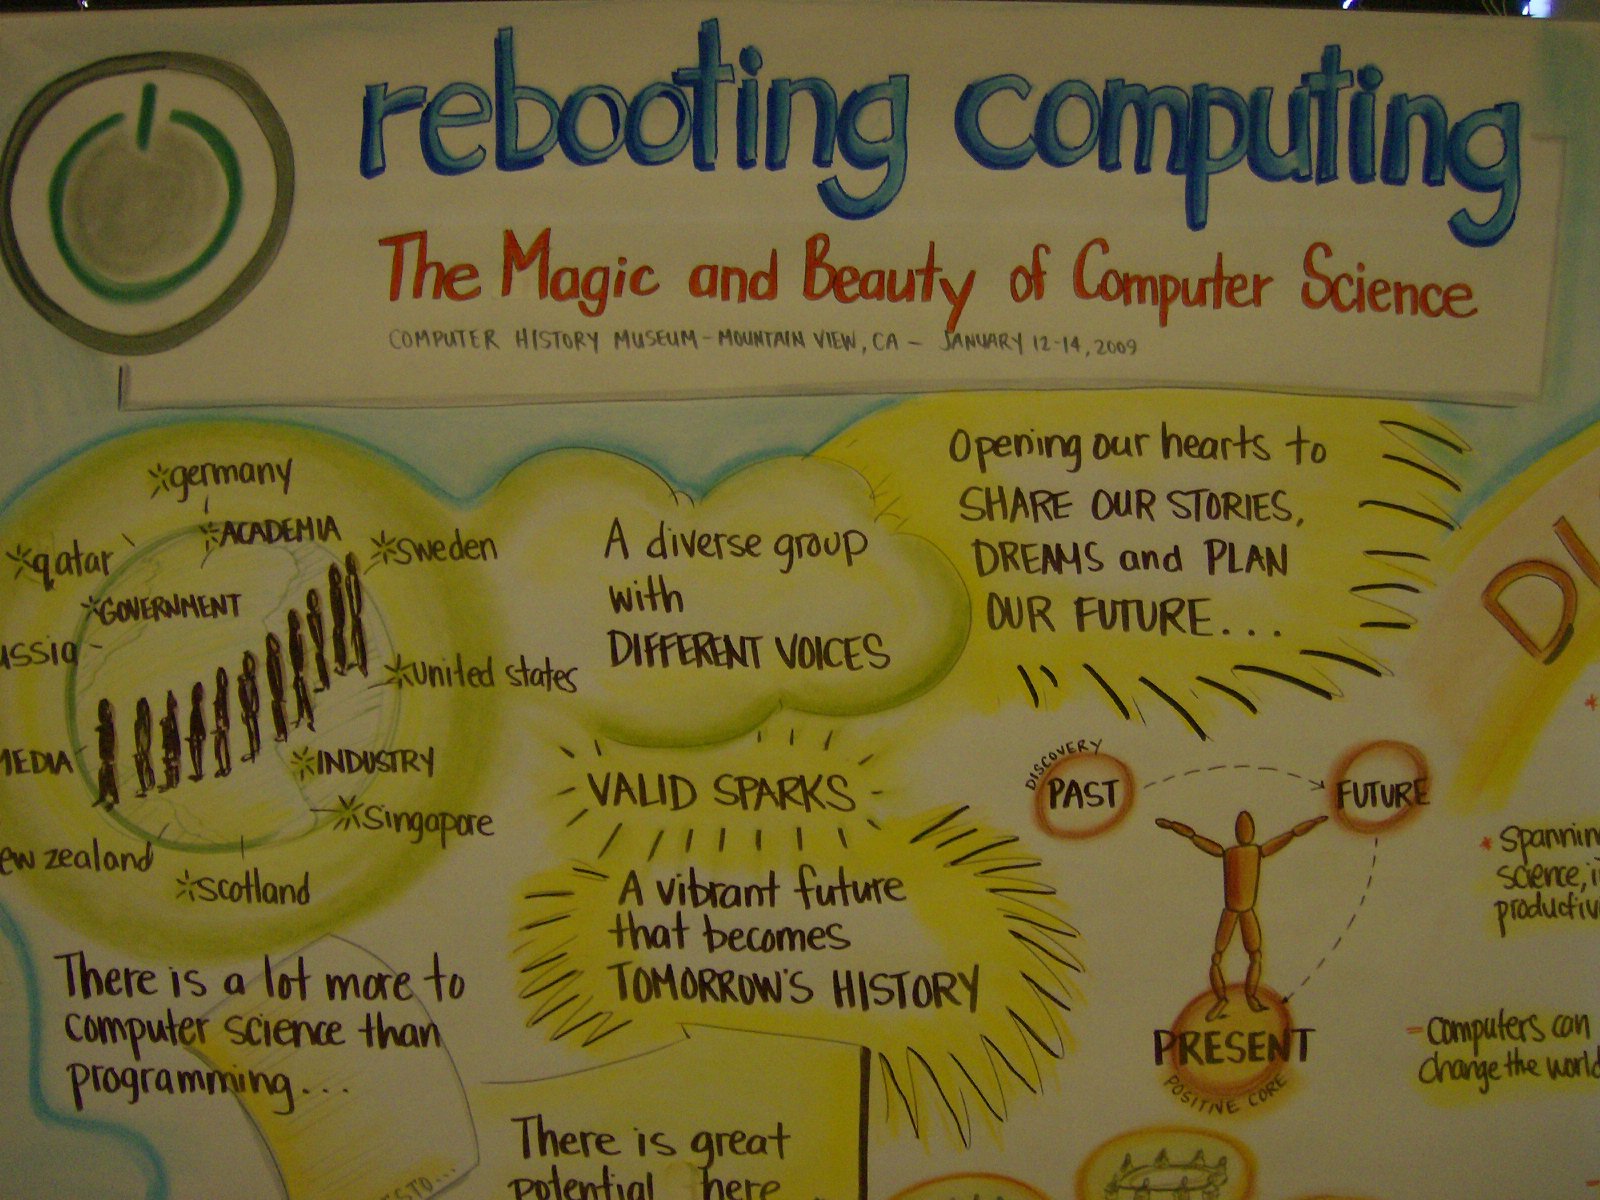 rebooting computing
The Magic and Beauty of Computer Science
COMPUTER HISTORY MUSEUM - MOUNTAIN VIEW, CA - JANUARY 12-14, 2009
germany
ACADEMIA
Sweden
qatar
GOVERNMENT
ussia
united states
MEDIA
INDUSTRY
Singapore
ew zealand
Scotland
A diverse group
with
DIFFERENT VOICES
Opening our hearts to
SHARE OUR STORIES,
DREAMS and PLAN
OUR FUTURE...
VALID SPARKS
A vibrant future
that becomes
TOMORROW'S HISTORY
DISCOVERY
PAST
FUTURE
PRESENT
POSITIVE CORE
There is a lot more to
computer science than
programming...
There is great
potential here
DI
* Spannin
science, i
productiv
- Computers can
change the world